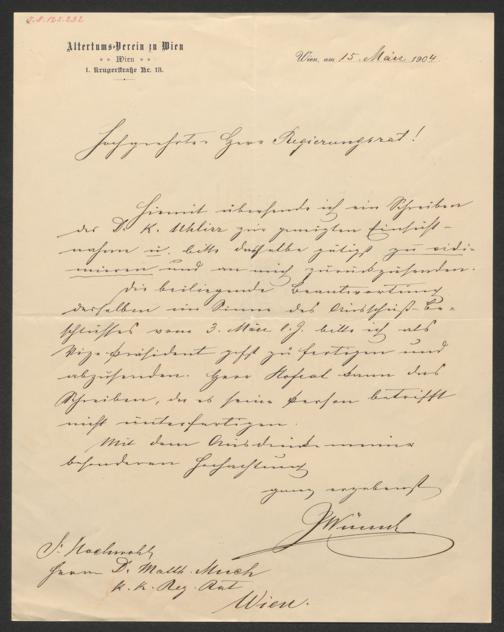 I.N. 125.232
Altertums-Verein zu Wien
Wien
I. Krugerstraße Nr. 13.
Wien, am 15. März 1904
Hochgeehrter Herr Regierungsrat!
Hiemit übersende ich ein Schreiben
des Dr. K. Uhlirz zur geneigten Einsicht-
nahme u. bitte dasselbe gütigst zu vidi-
mieren und an mich zurückzusenden.
Die beiliegende Beantwortung
desselben im Sinne des Ausschuß-Be-
schlusses vom 3. März l. J. bitte ich als
Vize-Präsident gefl. zu fertigen und
abzusenden. Herr Hofrat kann das
Schreiben, da es seine Person betrifft
nicht unterfertigen.
Mit dem Ausdrucke meiner
besonderen Hochachtung
ganz ergebenst
Herrn Dr. Math. Much
k. k. Reg. Rat
Wien.